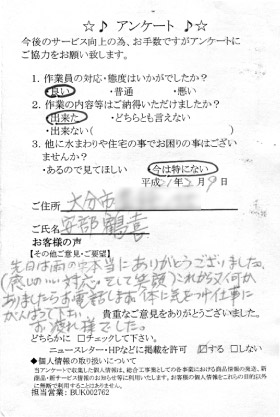 ☆♪ アンケート ♪☆
今後のサービス向上の為、お手数ですがアンケートに
ご協力をお願い致します。
1. 作業員の対応・態度はいかがでしたか?
・良い ・普通 ・悪い
2. 作業の内容等はご納得いただけましたか?
・出来た ・どちらとも言えない
・出来ない( )
3. 他に水まわりや住宅の事でお困りの事はござい
ませんか?
・あるので見てほしい ・今は特にない
平成21年2月9日
ご住所 大分市
ご氏名 安部鶴喜
お客様の声
【その他ご意見・ご要望】
先日は雨の中本当にありがとうございました。
(感じのいい対応。そして笑顔)これから又何か
ありましたらお電話します。体に気をつけ仕事に
がんばって下さい
お疲れ様でした。
貴重なご意見をありがとうございました。
どちらかに□チェックして下さい。
ニュースレター・HPなどに掲載を許可 ☑する □しない
◆個人情報の取り扱いについて
当アンケートで収集した個人情報は、総合工事業としての各事業における商品情報の発送、新
商品・新サービス情報のお知らせ等に利用いたします。お客様の個人情報をこれらの目的以外
に無断で利用することはありません。
担当営業: BUK002762